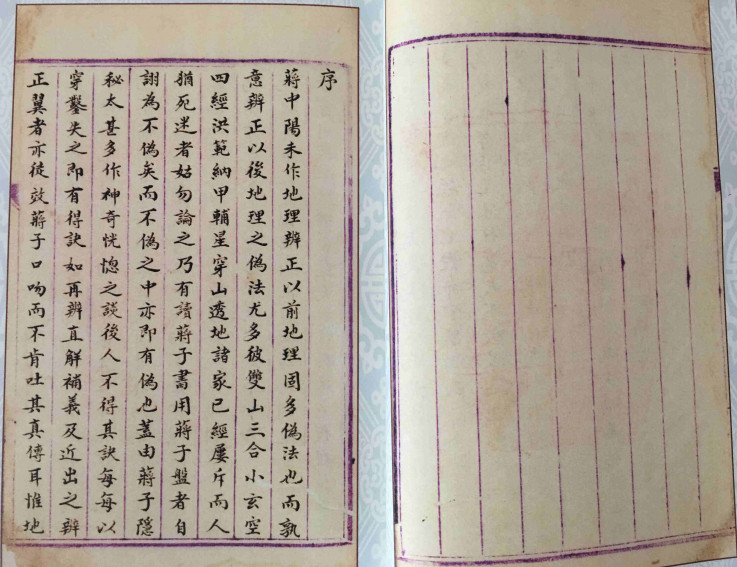 序
蔣中陽未作地理辨正以前地理固多偽法也而孰
意辨正以後地理之偽法尤多彼雙山三合小玄空
四經洪範納甲輔星穿山透地諸家已經屢斥而人
猶死迷者姑勿論之乃有讀蔣子書用蔣子盤者自
詡為不偽矣而不偽之中亦即有偽也蓋由蔣子隱
秘太甚多作神奇恍惚之談後人不得其訣每每以
穿鑿失之即有得訣如再辨直解補義及近出之辨
正翼者亦徒效蔣子口吻而不肯吐其真傳耳惟地